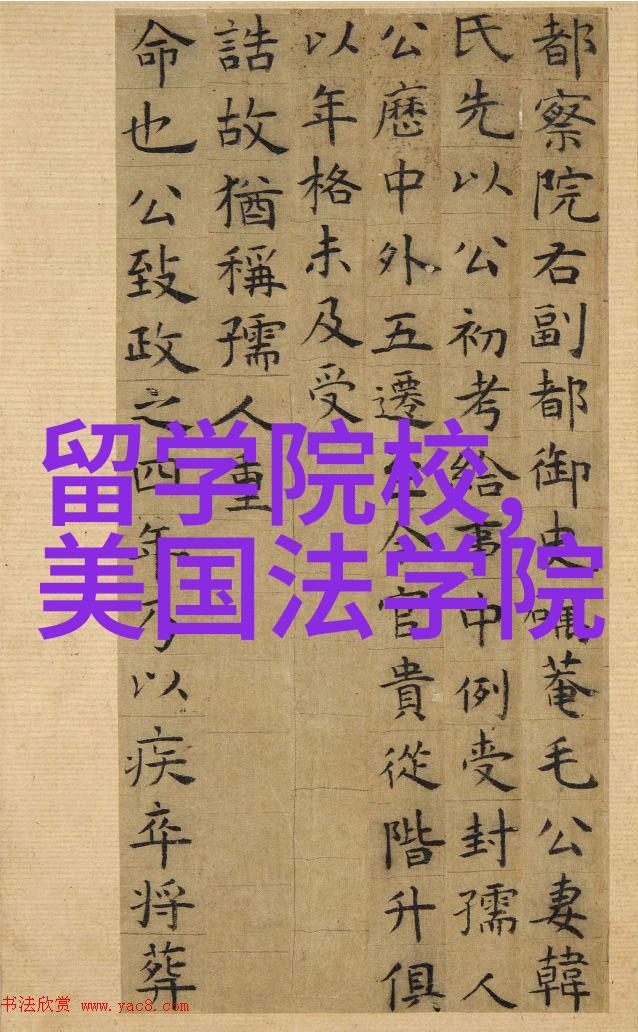 都察院右副都御史礪菴毛公妻韓
氏先以公初考給事中例受封孺人
公歷中外五遷至今官貴從階升俱
以年格未及受
誥故猶稱孺人重
命也公致政之四年乃以疾卒将葬
留学院校,
美国法学院
书法欣赏 www.yac8.com